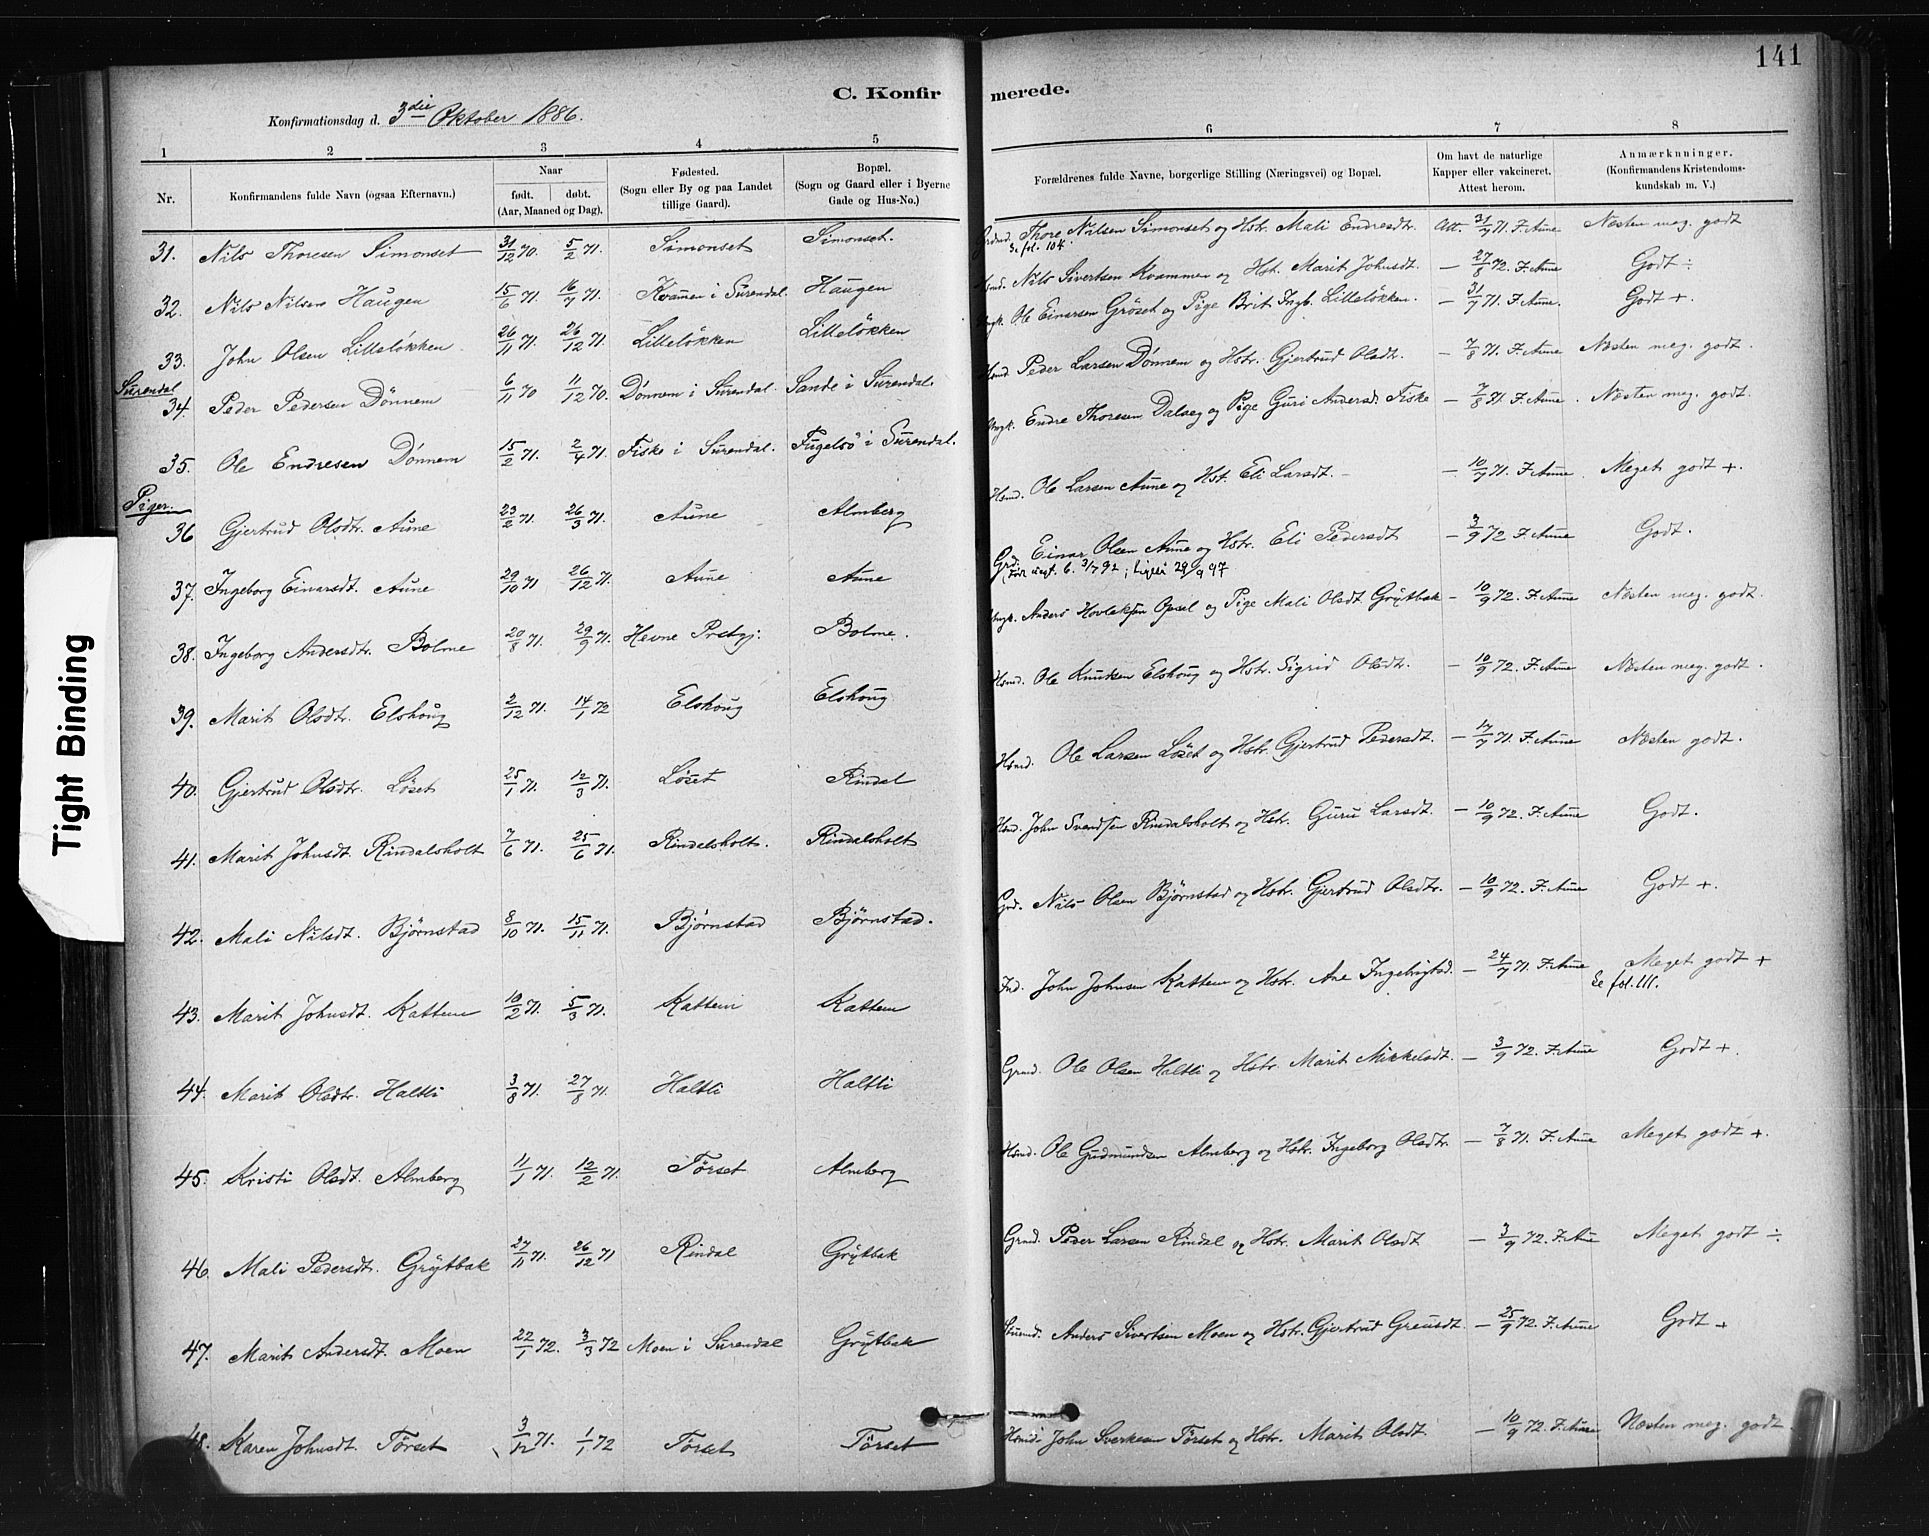 141
C. Konfirmerede.
Konfirmationsdag d. 3die Oktober 1886.
1 2 3 4 5 6 7 8
Nr. Konfirmandens fulde Navn (ogsaa Efternavn). Naar født. døbt. (Aar, Maaned og Dag). Fødested. (Sogn eller By og paa Landet tillige Gaard). Bopæl. (Sogn og Gaard eller i Byerne Gade og Hus-No.) Forældrenes fulde Navne, borgerlige Stilling (Næringsvei) og Bopæl. Om havt de naturlige Kapper eller vakcineret. Attest herom. Anmærkninger. (Konfirmandens Kristendomskundskab m. V.)
31. Nils Thoresen Simonset 31/12 70. 5/2 71. Simonset Simonset. Grdmd. Thore Nilsen Simonset og Hstr. Mali Endresdtr. Att. 31/7 71. F. Aune Næsten meg. godt
Se fol. 104.
32. Nils Nilsen Haugen 15/6 71. 16/7 71. Kvamen i Surendal. Haugen Hsmd. Nils Sivertsen Kvammen og Hst. Marit Johnsdt. — 27/8 72. F. Aune Godt ÷
33. John Olsen Lilleløkken 26/11 71. 26/12 71. Lilleløkken Lilleløkken Ungk. Ole Einarsen Grøset og Pige Brit Ingb. Lilleløkken. — 31/7 71. F. Aune. Godt +.
Surendal
34. Peder Pedersen Dønnem 6/11 70 11/12 70. Dønnem i Surendal. Sande i Surendal. Hsmd. Peder Larsen Dønnem og Hstr. Gjertrud Olsdtr. — 7/8 71. F. Aune Næsten meg. godt.
35. Ole Endresen Dønnem 15/2 71. 2/4 71. Fiske i Surendal. Fugelsø i Surendal. Ungk. Endre Thoresen Dalseg og Pige Guri Andersd. Fiske — 7/8 71. F. Aune. Næsten meg. godt.
Piger.
36 Gjertrud Olsdtr. Aune 23/2 71. 26/3 71. Aune Almberg Hsmd. Ole Larsen Aune og Hst. Eli Larsdt. — 10/7 71. F. Aune Meget godt +.
37. Ingeborg Einarsdt. Aune 29/10 71 26/12 71. Aune Aune Grd. Einar Olsen Aune og Hstr. Eli Pedersdt — 3/9 72 F. Aune Godt.
38. Ingeborg Andersdtr. Bolme 20/8 71. 29/9 71. Hevne Prstgj. Bolme. Ungk. Anders Hovlaksen Opsel og Pige Mali Olsdt. Grytbak — 10/9 72. F. Aune Næsten meg. godt.
39. Marit Olsdtr. Elshoug 2/12 71. 14/1 72 Elshoug Elshoug Hsmd. Ole Knutsen Elshoug og Hstr. Sigrid Olsdtr. — 10/9 72. F. Aune Næsten meg. godt.
40. Gjertrud Olsdtr. Løset 25/1 71. 12/3 71. Løset Rindal Hsmd. Ole Larsen Løset og Hstr. Gjertrud Pedersdt. — 17/7 71. F. Aune Næsten godt.
41. Marit Johnsdt. Rindalsholt 7/6 71. 25/6 71. Rindalsholt. Rindalsholt Hsmd. John Svendsen Rindalsholt og Hstr. Guru Larsdt. — 10/9 72. F. Aune Godt.
42. Mali Nilsdt. Bjørnstad 8/10 71. 15/11 71. Bjørnstad Bjørnstad. Grd. Nils Olsen Bjørnstad og Hstr. Gjertrud Olsdtr. — 10/9 72. F. Aune Godt +.
43. Marit Johnsdt. Kattem 10/2 71. 5/3 71. Kattem Kattem Ind. John Johnsen Kattem og Hstr. Ane Ingebrigtsd. — 24/7 71. F. Aune Meget godt +
Se fol. 111.
44. Marit Olsdtr. Haltli 3/8 71. 27/8 71. Haltli Haltli Grmd. Ole Olsen Haltli og Hstr. Marit Mikkelsdt. — 3/9 72. F. Aune Godt +.
45. Kristi Olsdt. Almberg 11/1 71. 12/2 71. Tørset Almberg Hsmd. Ole Gudmundsen Almberg og Hstr. Ingeborg Olsdtr. — 7/8 71. F. Aune Meget godt +.
46. Mali Pedersdt. Grytbak 27/11 71. 26/12 71 Rindal Grytbak Grmd. Peder Larsen Rindal og Hstr. Marit Olsdt — 3/9 72. F. Aune Meget godt ÷
47. Marit Andersdt. Moen 22/1 72. 3/3 72 Moen i Surendal Grytbak Stuemd. Anders Sivertsen Moen og Hstr. Gjertrud Greusdt. — 25/9 72. F. Aune Godt +
48. Karen Johnsdt. Tørset 3/12 71. 1/1 72 Tørset Tørset Hsmd. John Sverkesen Tørset og Hstr. Marit Olsdt. — 10/9 72. F. Aune Næsten meg. godt
Tight Binding